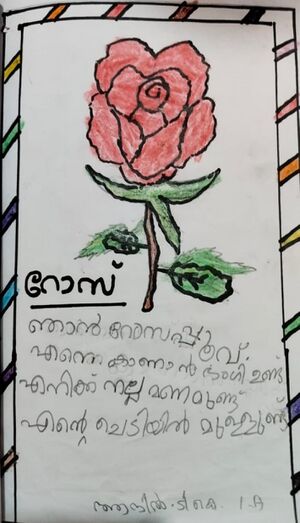 റോസ്
ഞാൻ റോസപ്പൂവ്.
എന്നെ കാണാൻ ഭംഗി ഉണ്ട്
എനിക്ക് നല്ല മണമുണ്ട്
എന്റെ ചെടിയിൽ മുള്ളുണ്ട്
ടി.കെ. 1.A